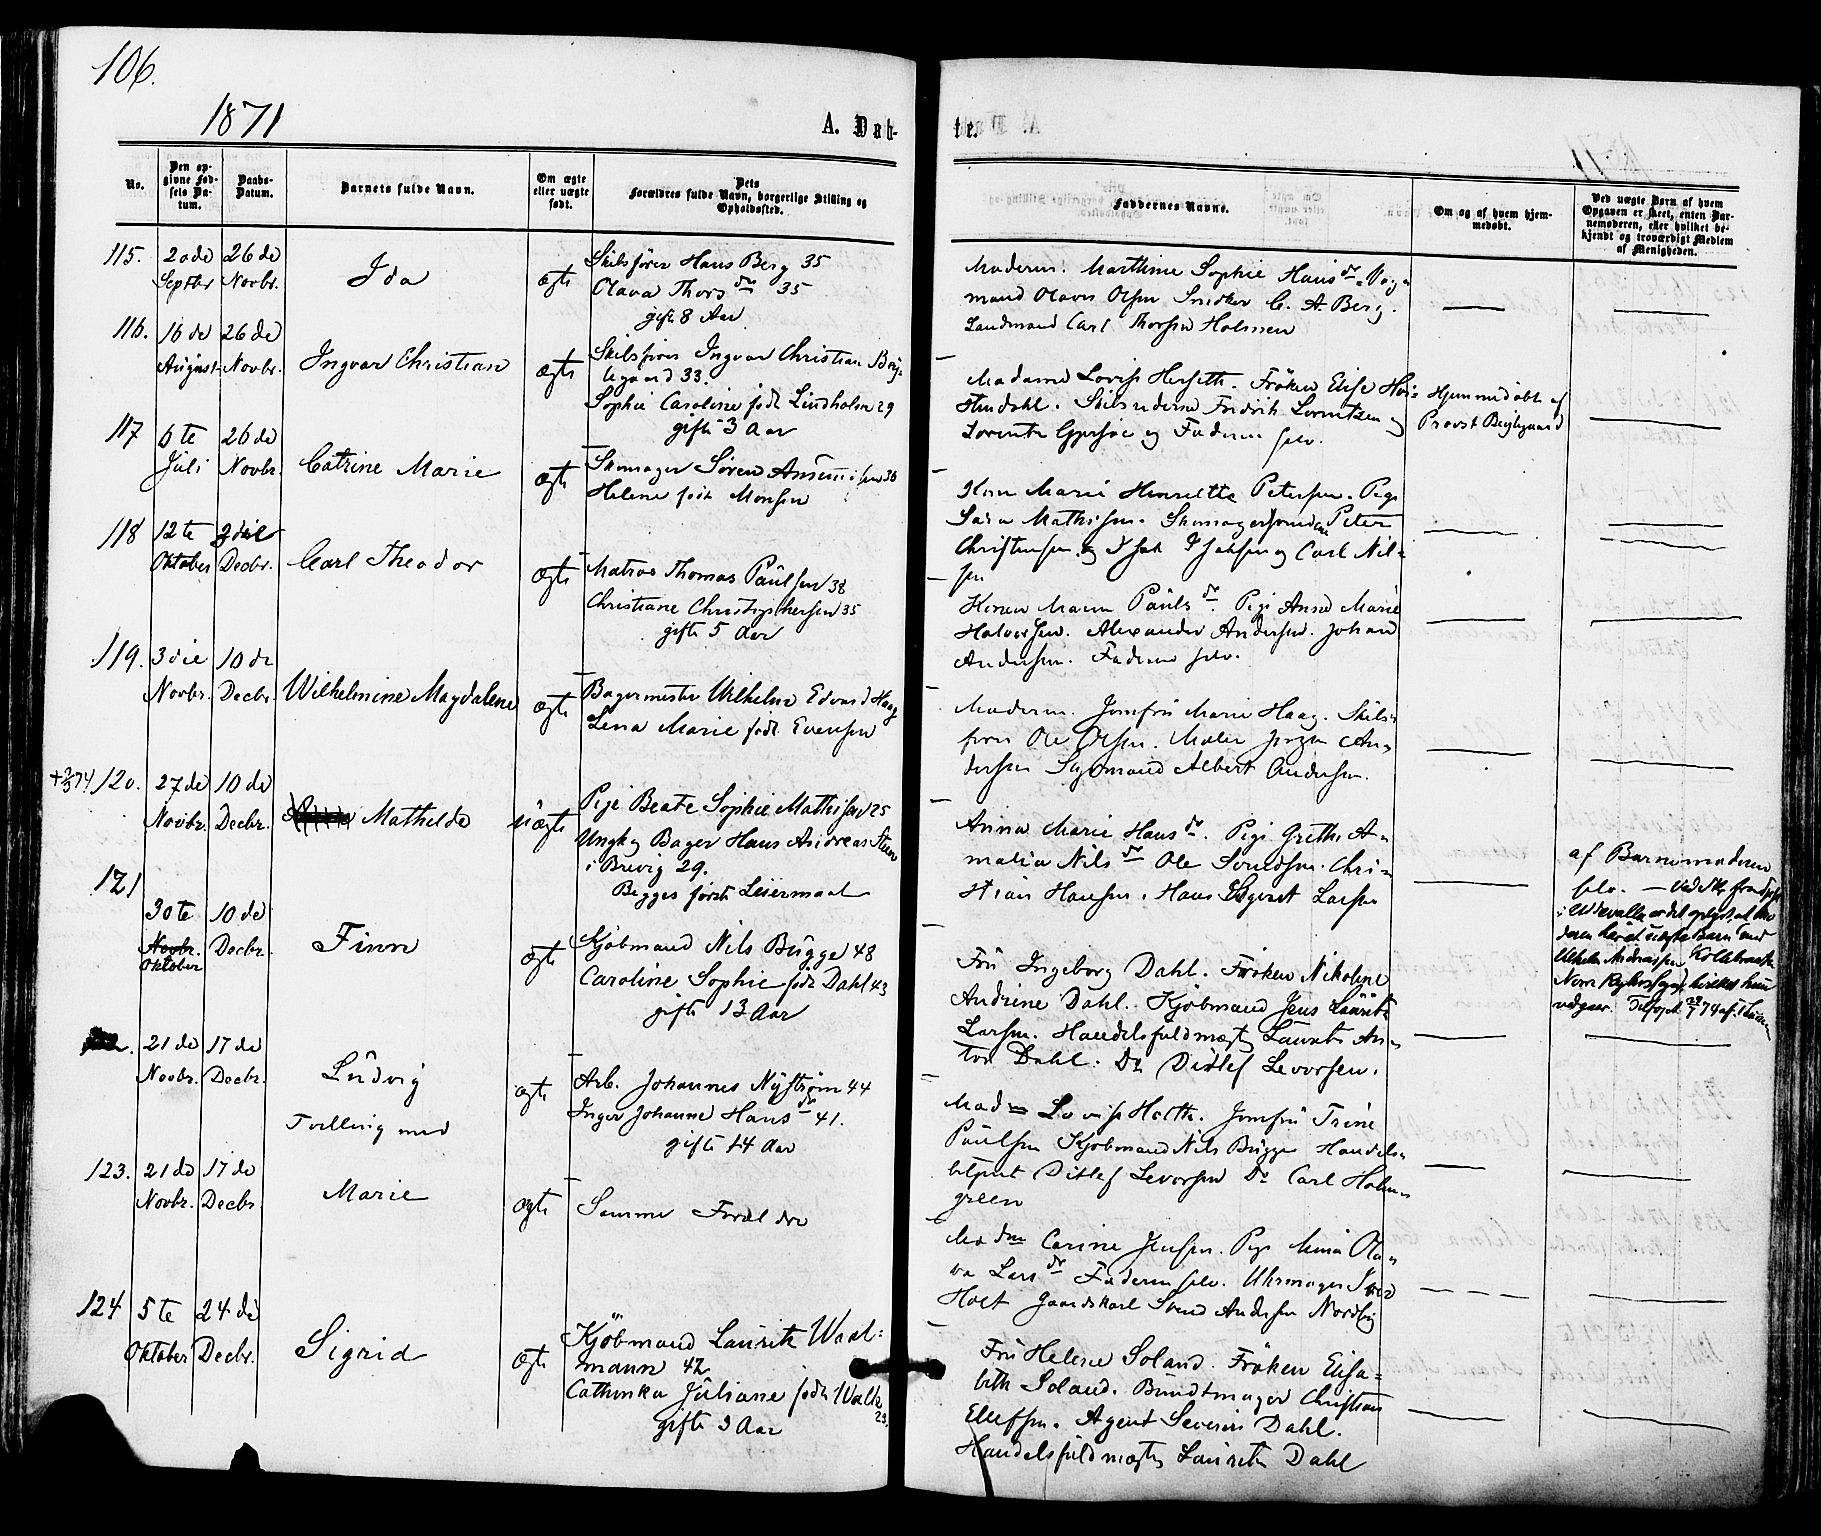 106.
1871
A. Døb-
te.
No.
Den op-
givne Fød-
sels Da-
tum.
Daabs-
Datum.
Barnets fulde Navn.
Om ægte
eller uægte
født.
Dets
Forældres fulde Navn, borgerlige Stilling og
Opholdssted.
Faddernes Navne.
Om og af hvem hjem-
medøbt.
Ved uægte Børn af hvem
Opgaven er skeet, enten Bar-
nemoderen, eller hvilket be-
kjendt og troværdigt Medlem
af Menigheden.
115. 20de 26de
Septbr Novbr.
Ida
ægte
Skibsfører Hans Berg 35
Olava Thorsdr 35
gifte 8 Aar
Moderen. Marthine Sophie Hansdr. Vog-
mand Olaves Olsen Snedker C. A. Berg.
Landmand Carl Thorsen Holmen
116. 16de 26de
August Novbr.
Ingvar Christian
ægte
Skibsfører Ingvar Christian Bøy-
legaard 33.
Sophie Caroline født Lindholm 29
gifte 3 Aar
Madame Lovise Herseth. Frøken Elise
Skibsrederne Fredrik Lorentzen og
Lorentz og Faderen selv.
Hjemmedøbt af
Provst Bøylegaard
117 6te 26de
Juli Novbr.
Catrine Marie
ægte
Skomager Søren 36
Helene født Monsen
Kone Marie Henriette Petersen. Pige
Sara Mathisen. Skomagersvendene Peter
Christensen og Carl Nil-
sen
118 12te 3die
Oktober Decbr.
Carl Theodor
ægte
Matros Thomas Paulsen 38
Christiane Christophersen 35
gifte 5 Aar
Konen Maren Paulsdr. Pige Anne Marie
Halvorsen. Alexander Andersen. Johan
Andersen. Faderen selv.
119. 3die 10de
Novbr. Decbr.
Wilhelmine Magdalene
ægte
Bagermester Wilhelm Edvard Haag
Lena Marie født Evensen
Moderen. Jomfru Marie Haag. Skibs-
fører Ole Olsen. Maler Jørgen An-
dersen Sygmand Albert Andersen.
120. 27de 10de
Novbr. Decbr.
Mathilde
uægte
Pige Beate Sophie Mathisen 25
Ungk. og Bager Hans Andreas Steen
i Brevig 29.
Begges første Leiermaal
Anna Marie Hansdr. Pige Grethe A-
malia Nilsdr Ole Svendsen. Chri-
stian Hansen. Hans Larsen
af Barnemoderen
selv.
121
30te 10de
Novbr.
Oktober Decbr.
Finn
ægte
Kjøbmand Nils Bugge 48
Caroline Sophie født Dahl 43
gift 13 Aar
Fru Ingeborg Dahl. Frøken Nikoline
Andrine Dahl. Kjøbmand Jens Lauritz
Larsen. Handelsfuldmægtig Laurits An-
ton Dahl. Do Ditlef Levorsen.
21de 17de
Novbr. Decbr.
Ludvig
Tvilling med
ægte
Arb. Johannes Nystrøm 44
Inger Johanne Hansdr 41.
gifte 14 Aar
Madm Lovise Holth. Jomfru Trine
Paulsen Kjøbmand Nils Bugge Handels-
betjent Ditlef Levorsen Do Carl Holm-
green
123. 21de 17de
Novbr. Decbr.
Marie
ægte
Samme Forældre
Madm Carine Jensen. Pige Mina Ola-
va Larsdr Faderen selv. Uhrmager
Holt Gaardskarl Svend Andersen Nordby
124 5te 24de
Oktober Decbr.
Sigrid
ægte
Kjøbmand Lauritz Waal-
mann 42
Cathinka Juliane født
29.
gifte 3 Aar
Fru Helene Soland. Frøken Elisa-
beth Soland. Bundtmager Christian
Ellefsen. Agent Severin Dahl.
Handelsfuldmægtig Lauritz Dahl